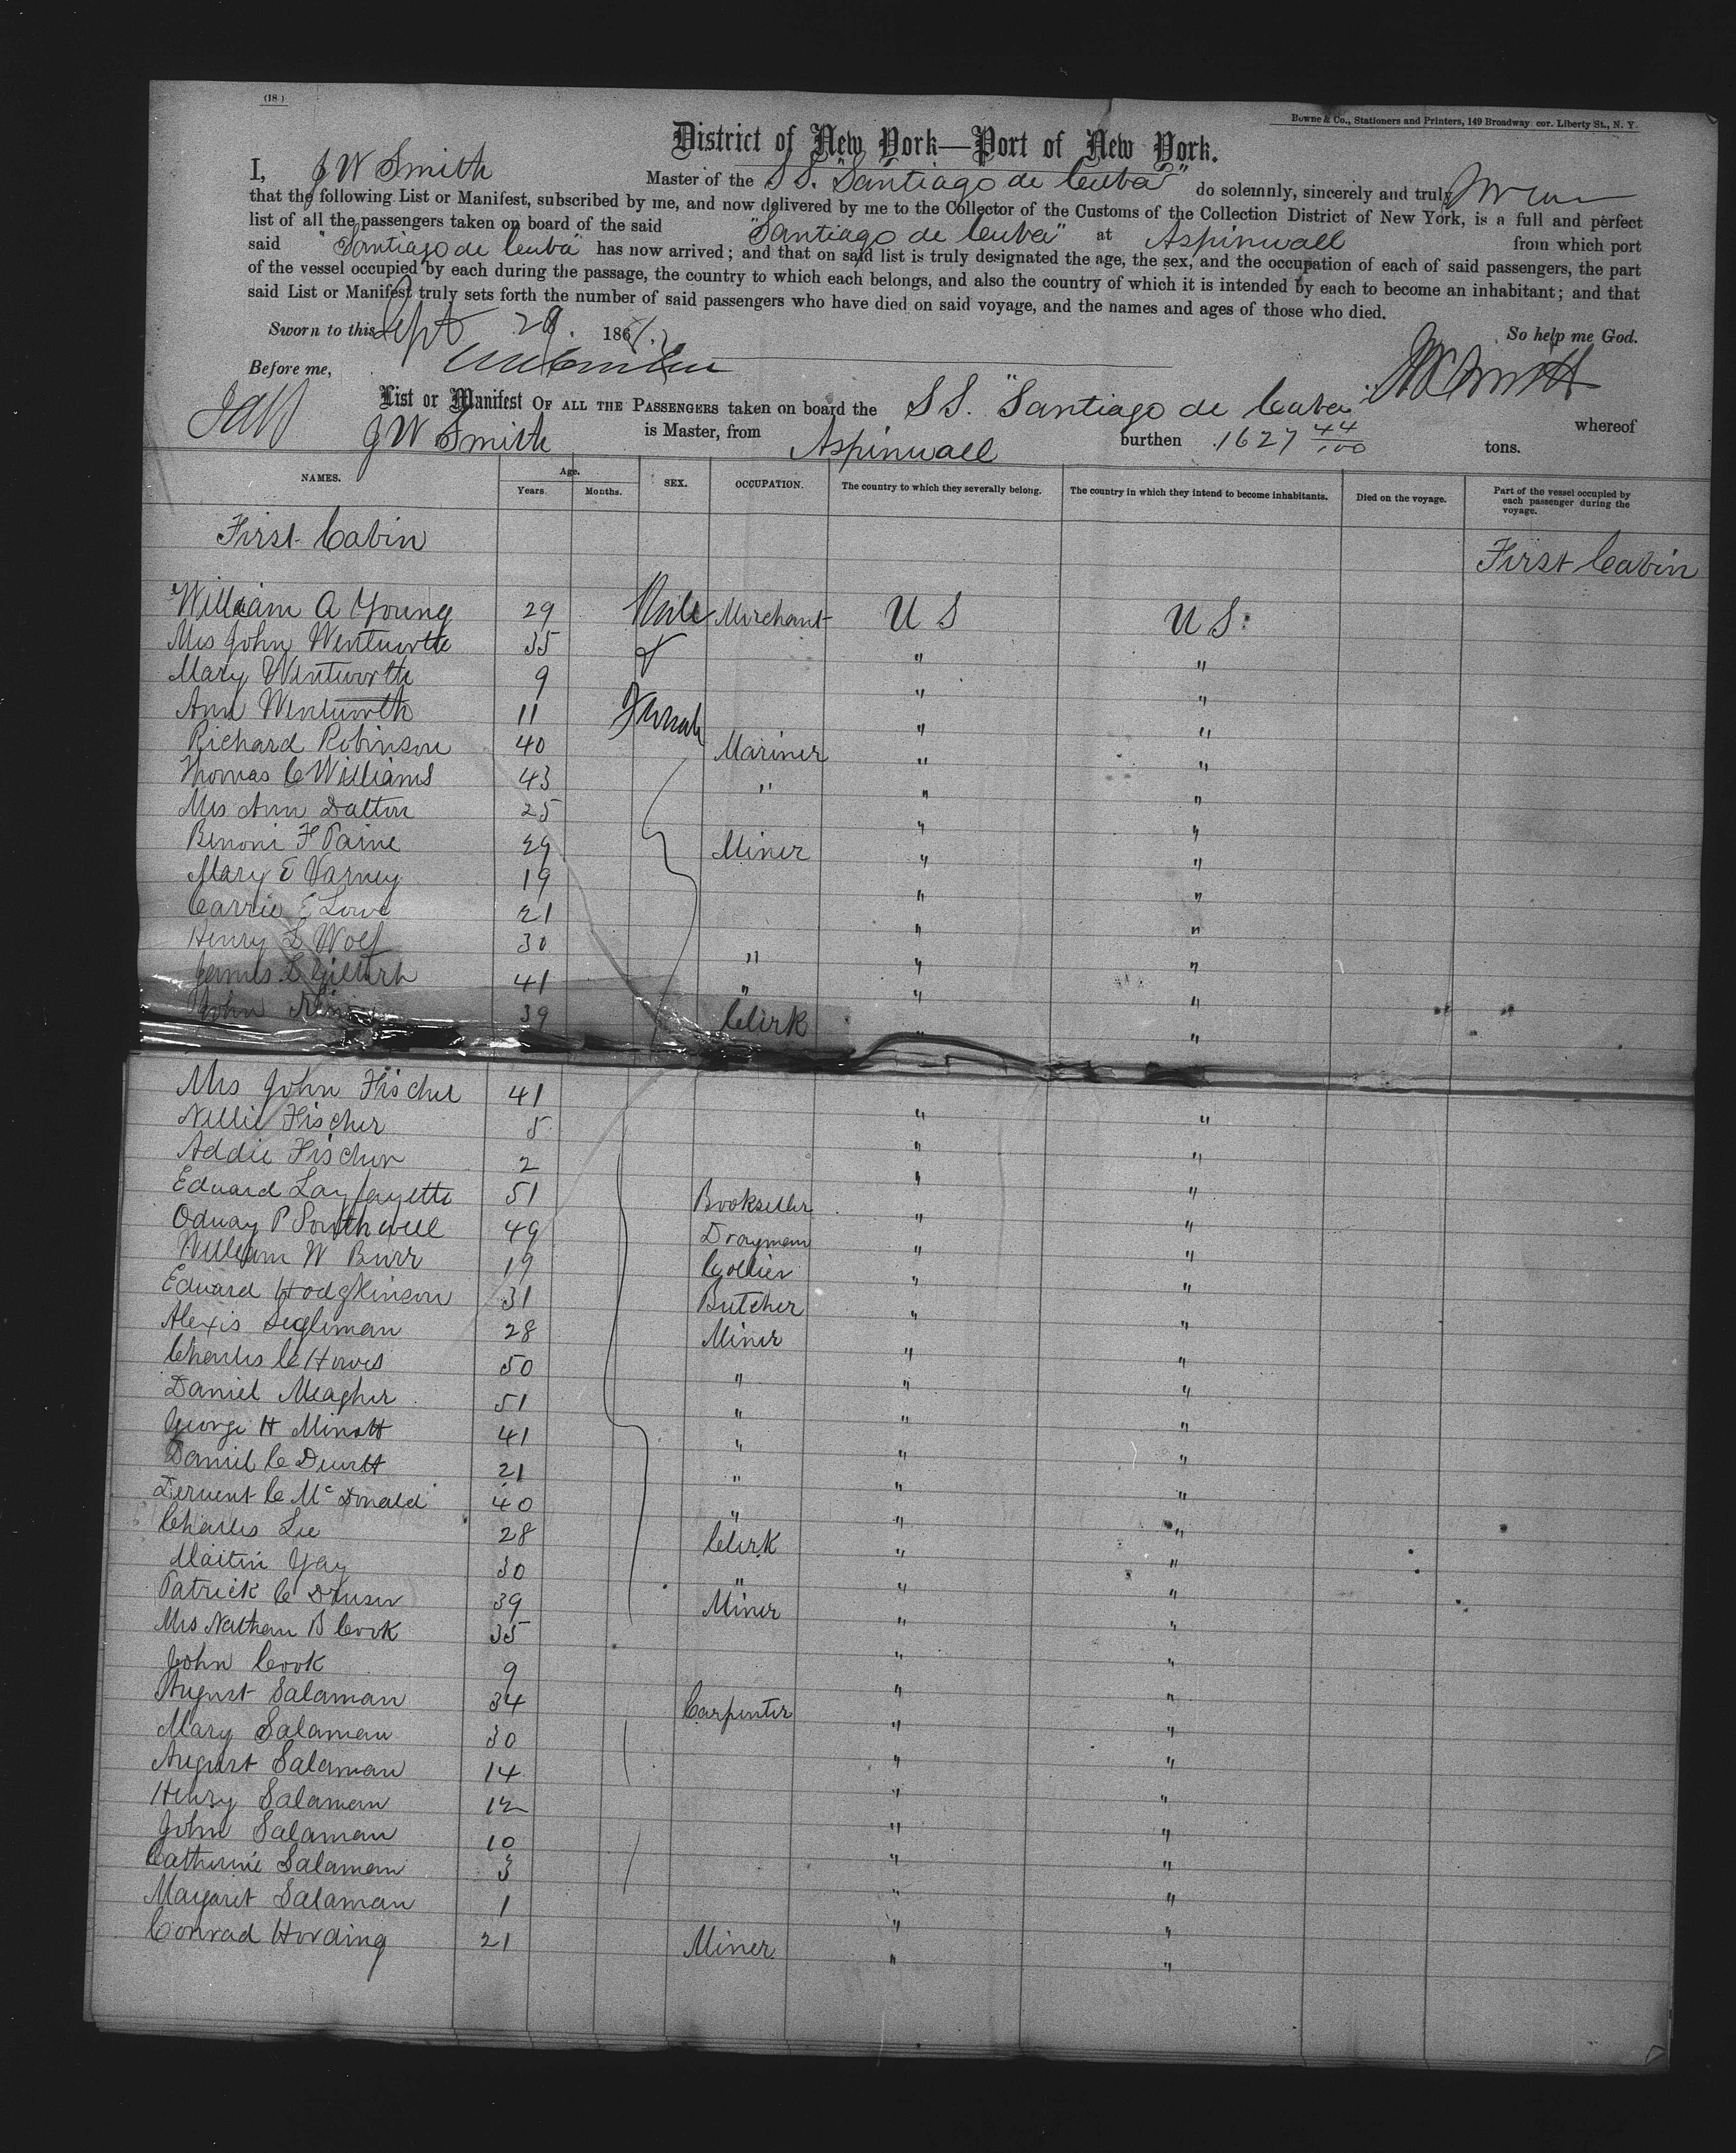 (18 )
Bowne & Co., Stationers and Printers, 149 Broadway cor. Liberty St., N. Y.
District of New York—Port of New York.
I, J W Smith Master of the S S. "Santiago de Cuba" do solemnly, sincerely and truly
that the following List or Manifest, subscribed by me, and now delivered by me to the Collector of the Customs of the Collection District of New York, is a full and perfect
list of all the passengers taken on board of the said "Santiago de Cuba" at Aspinwall from which port
said "Santiago de Cuba" has now arrived; and that on said list is truly designated the age, the sex, and the occupation of each of said passengers, the part
of the vessel occupied by each during the passage, the country to which each belongs, and also the country of which it is intended by each to become an inhabitant; and that
said List or Manifest truly sets forth the number of said passengers who have died on said voyage, and the names and ages of those who died.
Sworn to this Sept 29. 186 So help me God.
Before me, JW Smith
List or Manifest OF ALL THE PASSENGERS taken on board the S S. "Santiago de Cuba" whereof
J W Smith is Master, from Aspinwall burthen 1627 44/100 tons.
NAMES. Age. Years. Months. SEX. OCCUPATION. The country to which they severally belong. The country in which they intend to become inhabitants. Died on the voyage. Part of the vessel occupied by each passenger during the voyage.
First Cabin First Cabin
William A Young 29 Male Merchant U S U S.
Mrs John Wentworth 35 " "
Mary Wentworth 9 " "
Ann Wentworth 11 Female " "
Richard Robinson 40 Mariner " "
Thomas C Williams 43 " " "
Mrs Ann Dalton 25 " "
Benoni F Paine 29 Miner " "
Mary E Varney 19 " "
Carrie E Lowe 21 " "
Henry L Wolf 30 " " "
James 41 " " "
John 39 Clerk " "
Mrs John Fischer 41 " "
Nellie Fischer 5 " "
Addie Fischer 2 " "
Edward Layfayette 51 Bookseller " "
Oduay P Southwell 49 Drayman " "
William W Burr 19 Collier " "
Edward Hodgkinson 31 Butcher " "
Alexis Segliman 28 Miner " "
Charles C Howes 50 " " "
Daniel Meagher 51 " " "
George H Minott 41 " " "
Daniel C 21 " " "
Dervent C McDonald 40 " " "
Charles Lee 28 Clerk " "
Martin Gay 30 " " "
Patrick C 39 Miner " "
Mrs Nathan B Cook 35 " "
John Cook 9 " "
August Salaman 34 Carpenter " "
Mary Salaman 30 " "
August Salaman 14 " "
Henry Salaman 12 " "
John Salaman 10 " "
Catherine Salaman 3 " "
Margaret Salaman 1 " "
Conrad Hording 21 Miner " "